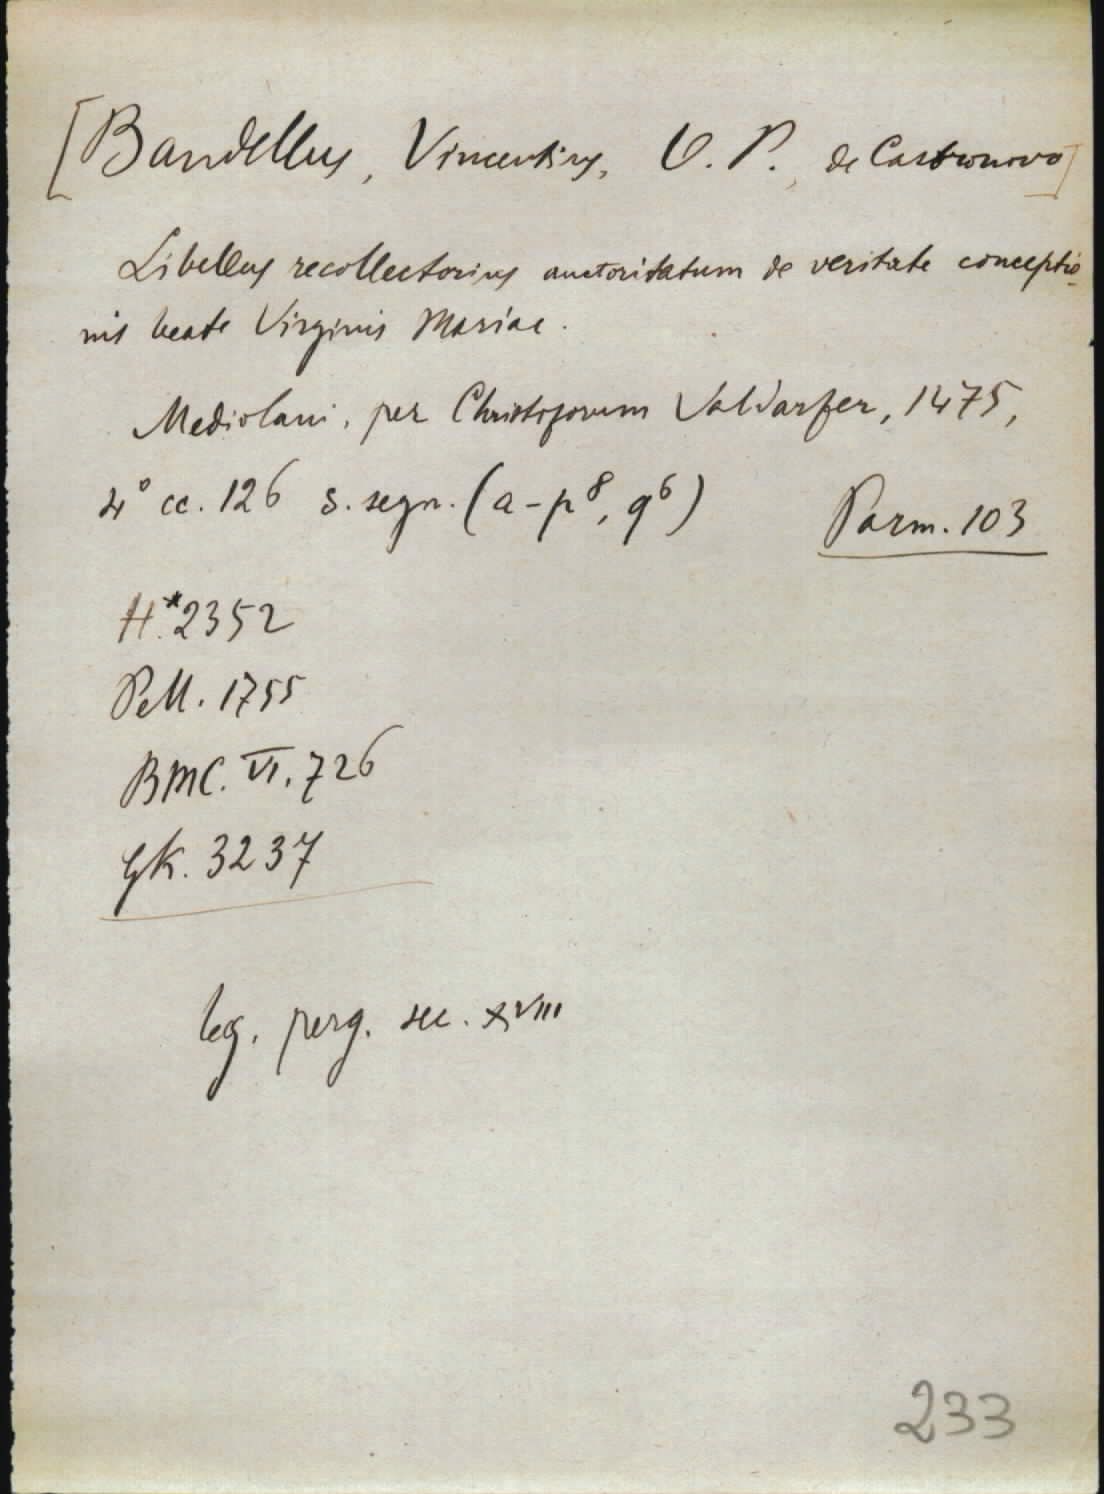 [Bandellus, Vincentius, O. P., de Castronovo]
Libellus recollectorius auctoritatum de veritate conceptio-
nis beate Virginis Mariae.
Mediolani, per Christoforum Valdarfer, 1475,
4° cc. 126 s. segn. (a-p⁸, q⁶)
Parm. 103
H.*2352
Pell. 1755
BMC. VI. 726
GK. 3237
leg. perg. sec. XVIII
233